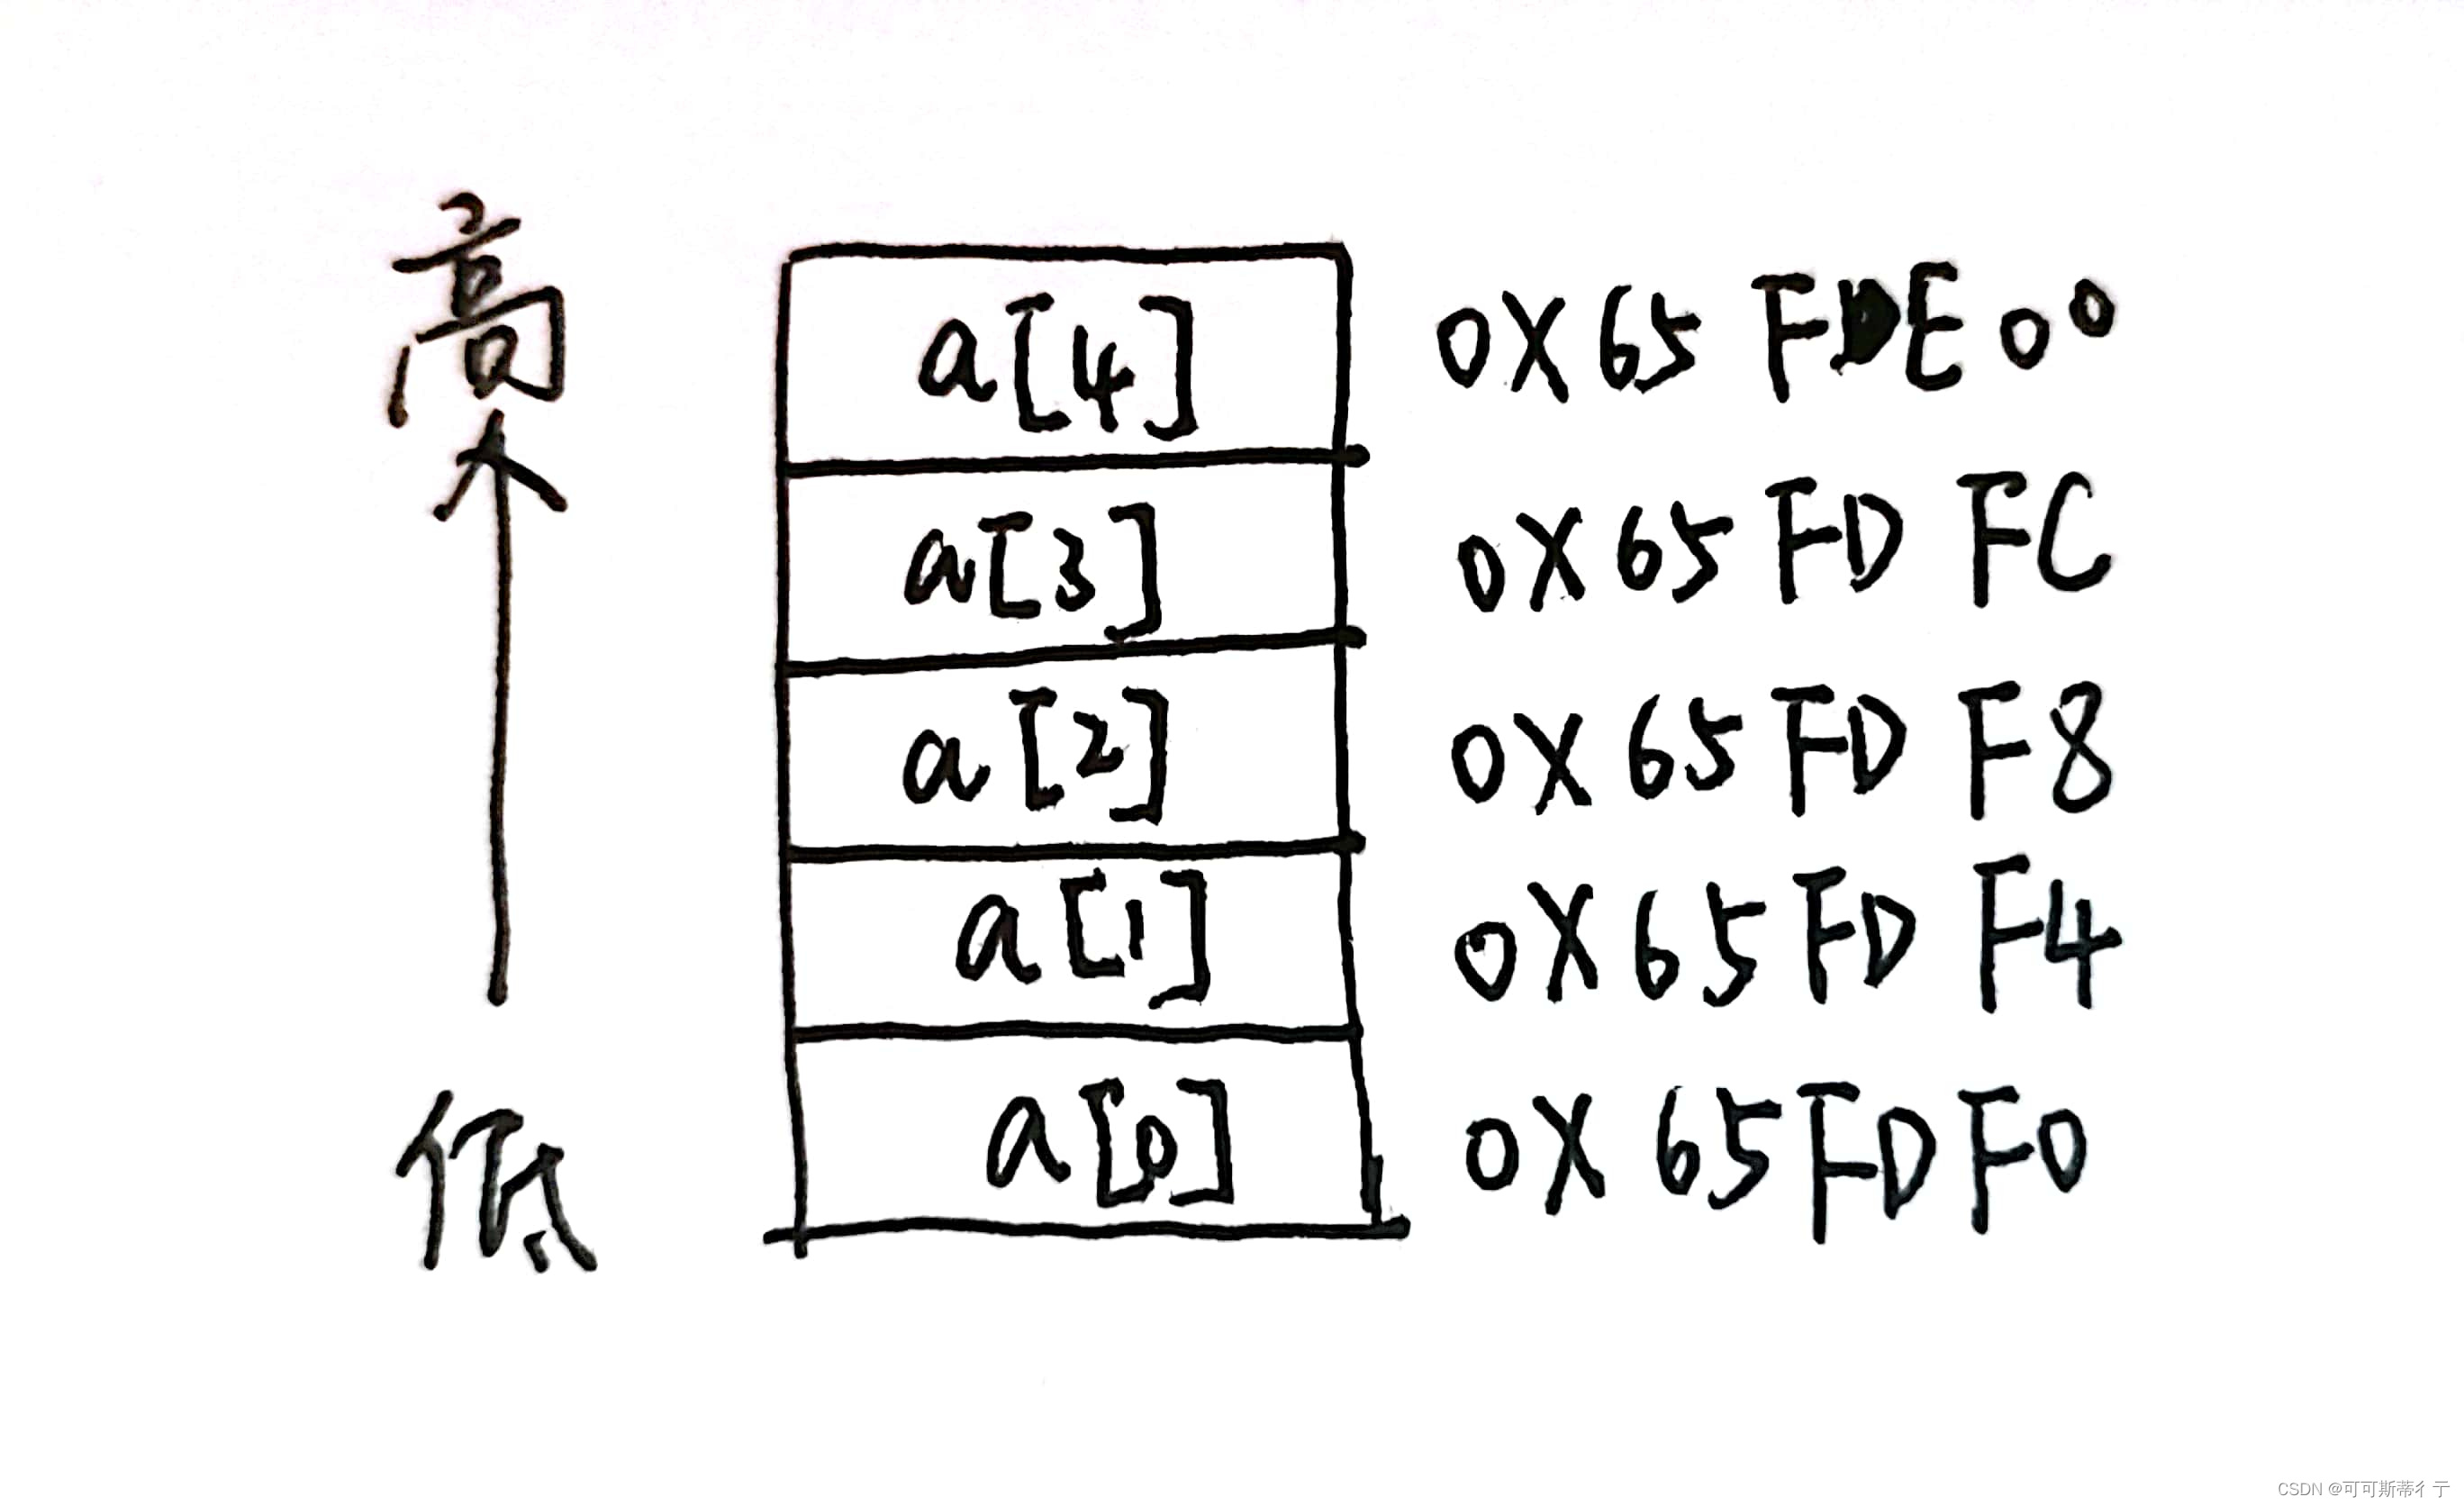 高
a[4] 0X65FDE00
a[3] 0X65FDFC
a[2] 0X65FDF8
a[1] 0X65FDF4
a[0] 0X65FDF0
低
CSDN @可可斯蒂彳亍